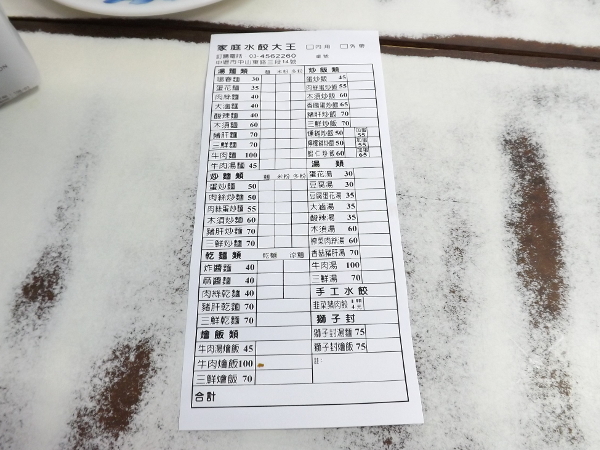 家庭水餃大王 □內用 □外帶
訂購電話 03-4562260 桌號
中壢市中山東路三段14號
湯麵類 麵 米粉 冬粉
陽春麵 30
蛋花麵 35
肉絲麵 40
大滷麵 40
酸辣麵 40
木須麵 60
豬肝麵 70
三鮮麵 70
牛肉麵 100
牛肉湯麵 45
炒麵類 麵 米粉 冬粉
蛋炒麵 50
肉絲炒麵 50
肉絲蛋炒麵 55
木須炒麵 60
豬肝炒麵 70
三鮮炒麵 70
乾麵類 乾麵 涼麵
炸醬麵 40
麻醬麵 40
肉絲乾麵 40
豬肝乾麵 70
三鮮乾麵 70
燴飯類
牛肉湯燴飯 45
牛肉燴飯 100
三鮮燴飯 70
合計
炒飯類
蛋炒飯 45
肉絲蛋炒飯 55
木須炒飯 60
香腸蛋炒飯 65
豬肝炒飯 70
三鮮炒飯 70
50
50
蝦仁炒飯 60
湯類
蛋花湯 30
豆腐湯 30
豆腐蛋花湯 35
大滷湯 35
酸辣湯 35
木須湯 60
榨菜肉絲湯 60
香菇豬肝湯 70
牛肉湯 100
三鮮湯 70
手工水餃
韭菜豬肉餃
獅子封
獅子封湯麵 75
獅子封燴飯 75
註: